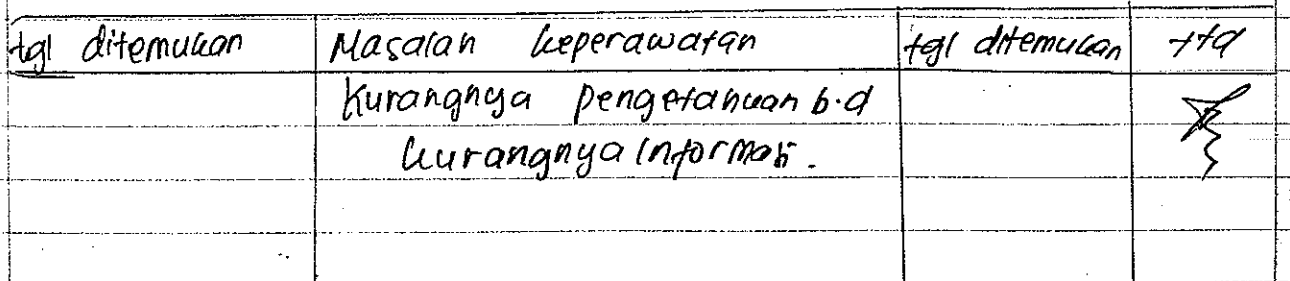 tgl ditemukan Masalah keperawatan tgl ditemukan ttd
Kurangnya pengetahuan b.d
kurangnya informasi.